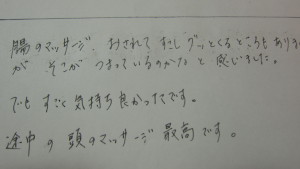 腸のマッサージ、おされて すこし グッとくるところもありました
が そこが つまっているのかな と 感じました。
でも すごく気持ち良かったです。
途中の頭のマッサージ最高です。